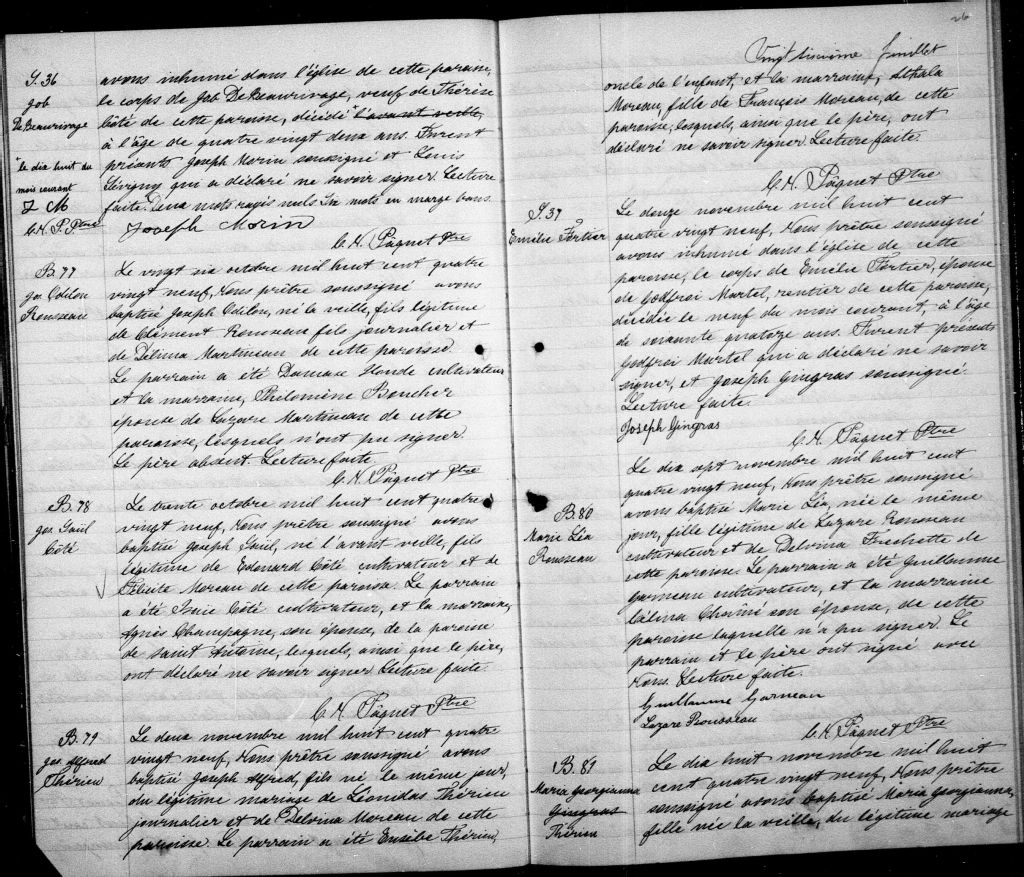 S. 36
Job
DeBeaurivage
*le dix huit du
mois courant
J M
C. H. P. Ptre
avons inhumé dans l'église de cette paroisse,
le corps de Job DeBeaurivage, veuf de Thérèse
Côté de cette paroisse, décédé * l'avant veille,
à l'âge de quatre vingt deux ans. Furent
présents Joseph Morin soussigné et Louis
Sévigny qui a déclaré ne savoir signer. Lecture
faite. Deux mots rayés nuls Six mots en marge bons.
Joseph Morin
C. H. Pâquet Ptre
B. 77
Jos. Odilon
Rousseau
Le vingt six octobre mil huit cent quatre
vingt neuf, Nous prêtre soussigné avons
baptisé Joseph Odilon, né la veille, fils légitime
de Clément Rousseau fils journalier et
de Délima Martineau de cette paroisse.
Le parrain a été Damase Houde cultivateur
et la marraine, Philomène Boucher
épouse de Lazare Martineau de cette
paroisse, lesquels n'ont pu signer.
Le père absent. Lecture faite.
C. H. Pâquet Ptre
B. 78
Jos. Saül
Côté
Le trente octobre mil huit cent quatre
vingt neuf, Nous prêtre soussigné avons
baptisé Joseph Saül, né l'avant veille, fils
légitime de Edouard Côté cultivateur et de
Félicité Moreau de cette paroisse. Le parrain
a été Isaïe Côté cultivateur, et la marraine,
Agnès Champagne, son épouse, de la paroisse
de Saint Antoine, lesquels, ainsi que le père,
ont déclaré ne savoir signer. Lecture faite.
C. H. Pâquet Ptre
B. 79
Jos. Alfred
Thérien
Le deux novembre mil huit cent quatre
vingt neuf, Nous prêtre soussigné avons
baptisé Joseph Alfred, fils né le même jour,
du légitime mariage de Léonidas Thérien
journalier et de Delvina Moreau de cette
paroisse. Le parrain a été Eusèbe Thérien,
26
Vingt sixième feuillet
oncle de l'enfant, et la marraine, Athala
Moreau, fille de François Moreau, de cette
paroisse, lesquels, ainsi que le père, ont
déclaré ne savoir signer. Lecture faite.
C. H. Pâquet Ptre
S. 37
Emélie Fortier
Le douze novembre mil huit cent
quatre vingt neuf, Nous prêtre soussigné
avons inhumé dans l'église de cette
paroisse, le corps de Emélie Fortier, épouse
de Godfroi Martel, rentier de cette paroisse,
décédée le neuf du mois courant, à l'âge
de soixante quatorze ans. Furent présents
Godfroi Martel qui a déclaré ne savoir
signer, et Joseph Gingras soussigné.
Lecture faite.
Joseph Gingras
C. H. Pâquet Ptre
B. 80
Marie Léa
Rousseau
Le dix sept novembre mil huit cent
quatre vingt neuf, Nous prêtre soussigné
avons baptisé Marie Léa, née le même
jour, fille légitime de Lazare Rousseau
cultivateur et de Delvina Frechette de
cette paroisse. Le parrain a été Guillaume
Garneau cultivateur, et la marraine
Célina Chaîné son épouse, de cette
paroisse laquelle n'a pu signer. Le
parrain et le père ont signé avec
Nous. Lecture faite.
Guillaume Garneau
Lazare Rousseau
C. H. Pâquet Ptre
B. 81
Maria Georgianna
Gingras
Thérien
Le dix huit novembre mil huit
cent quatre vingt neuf, Nous prêtre
soussigné avons baptisé Maria Georgianna,
fille née la veille, du légitime mariage